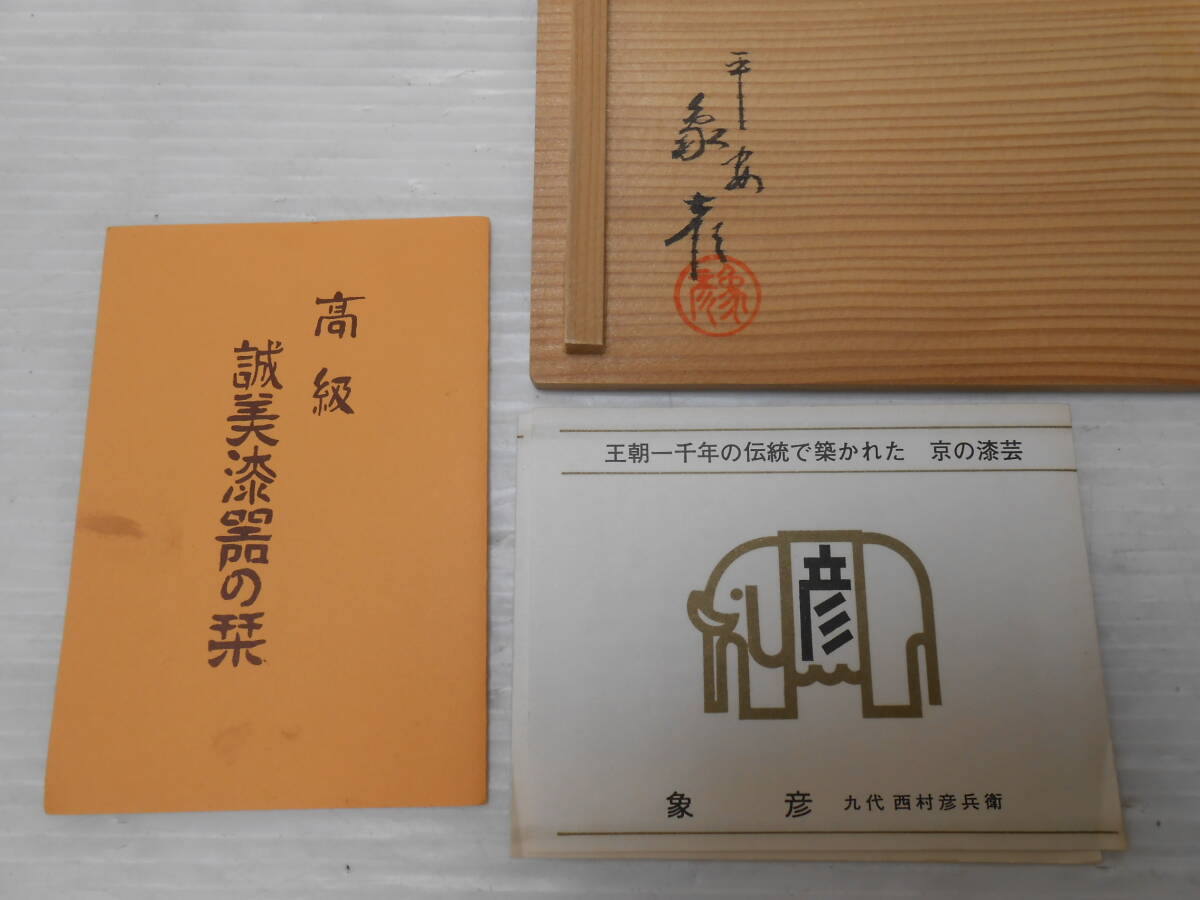 平安
象彦
象彦
高級
誠美漆器の栞
王朝一千年の伝統で築かれた 京の漆芸
彦
象彦 九代 西村彦兵衛